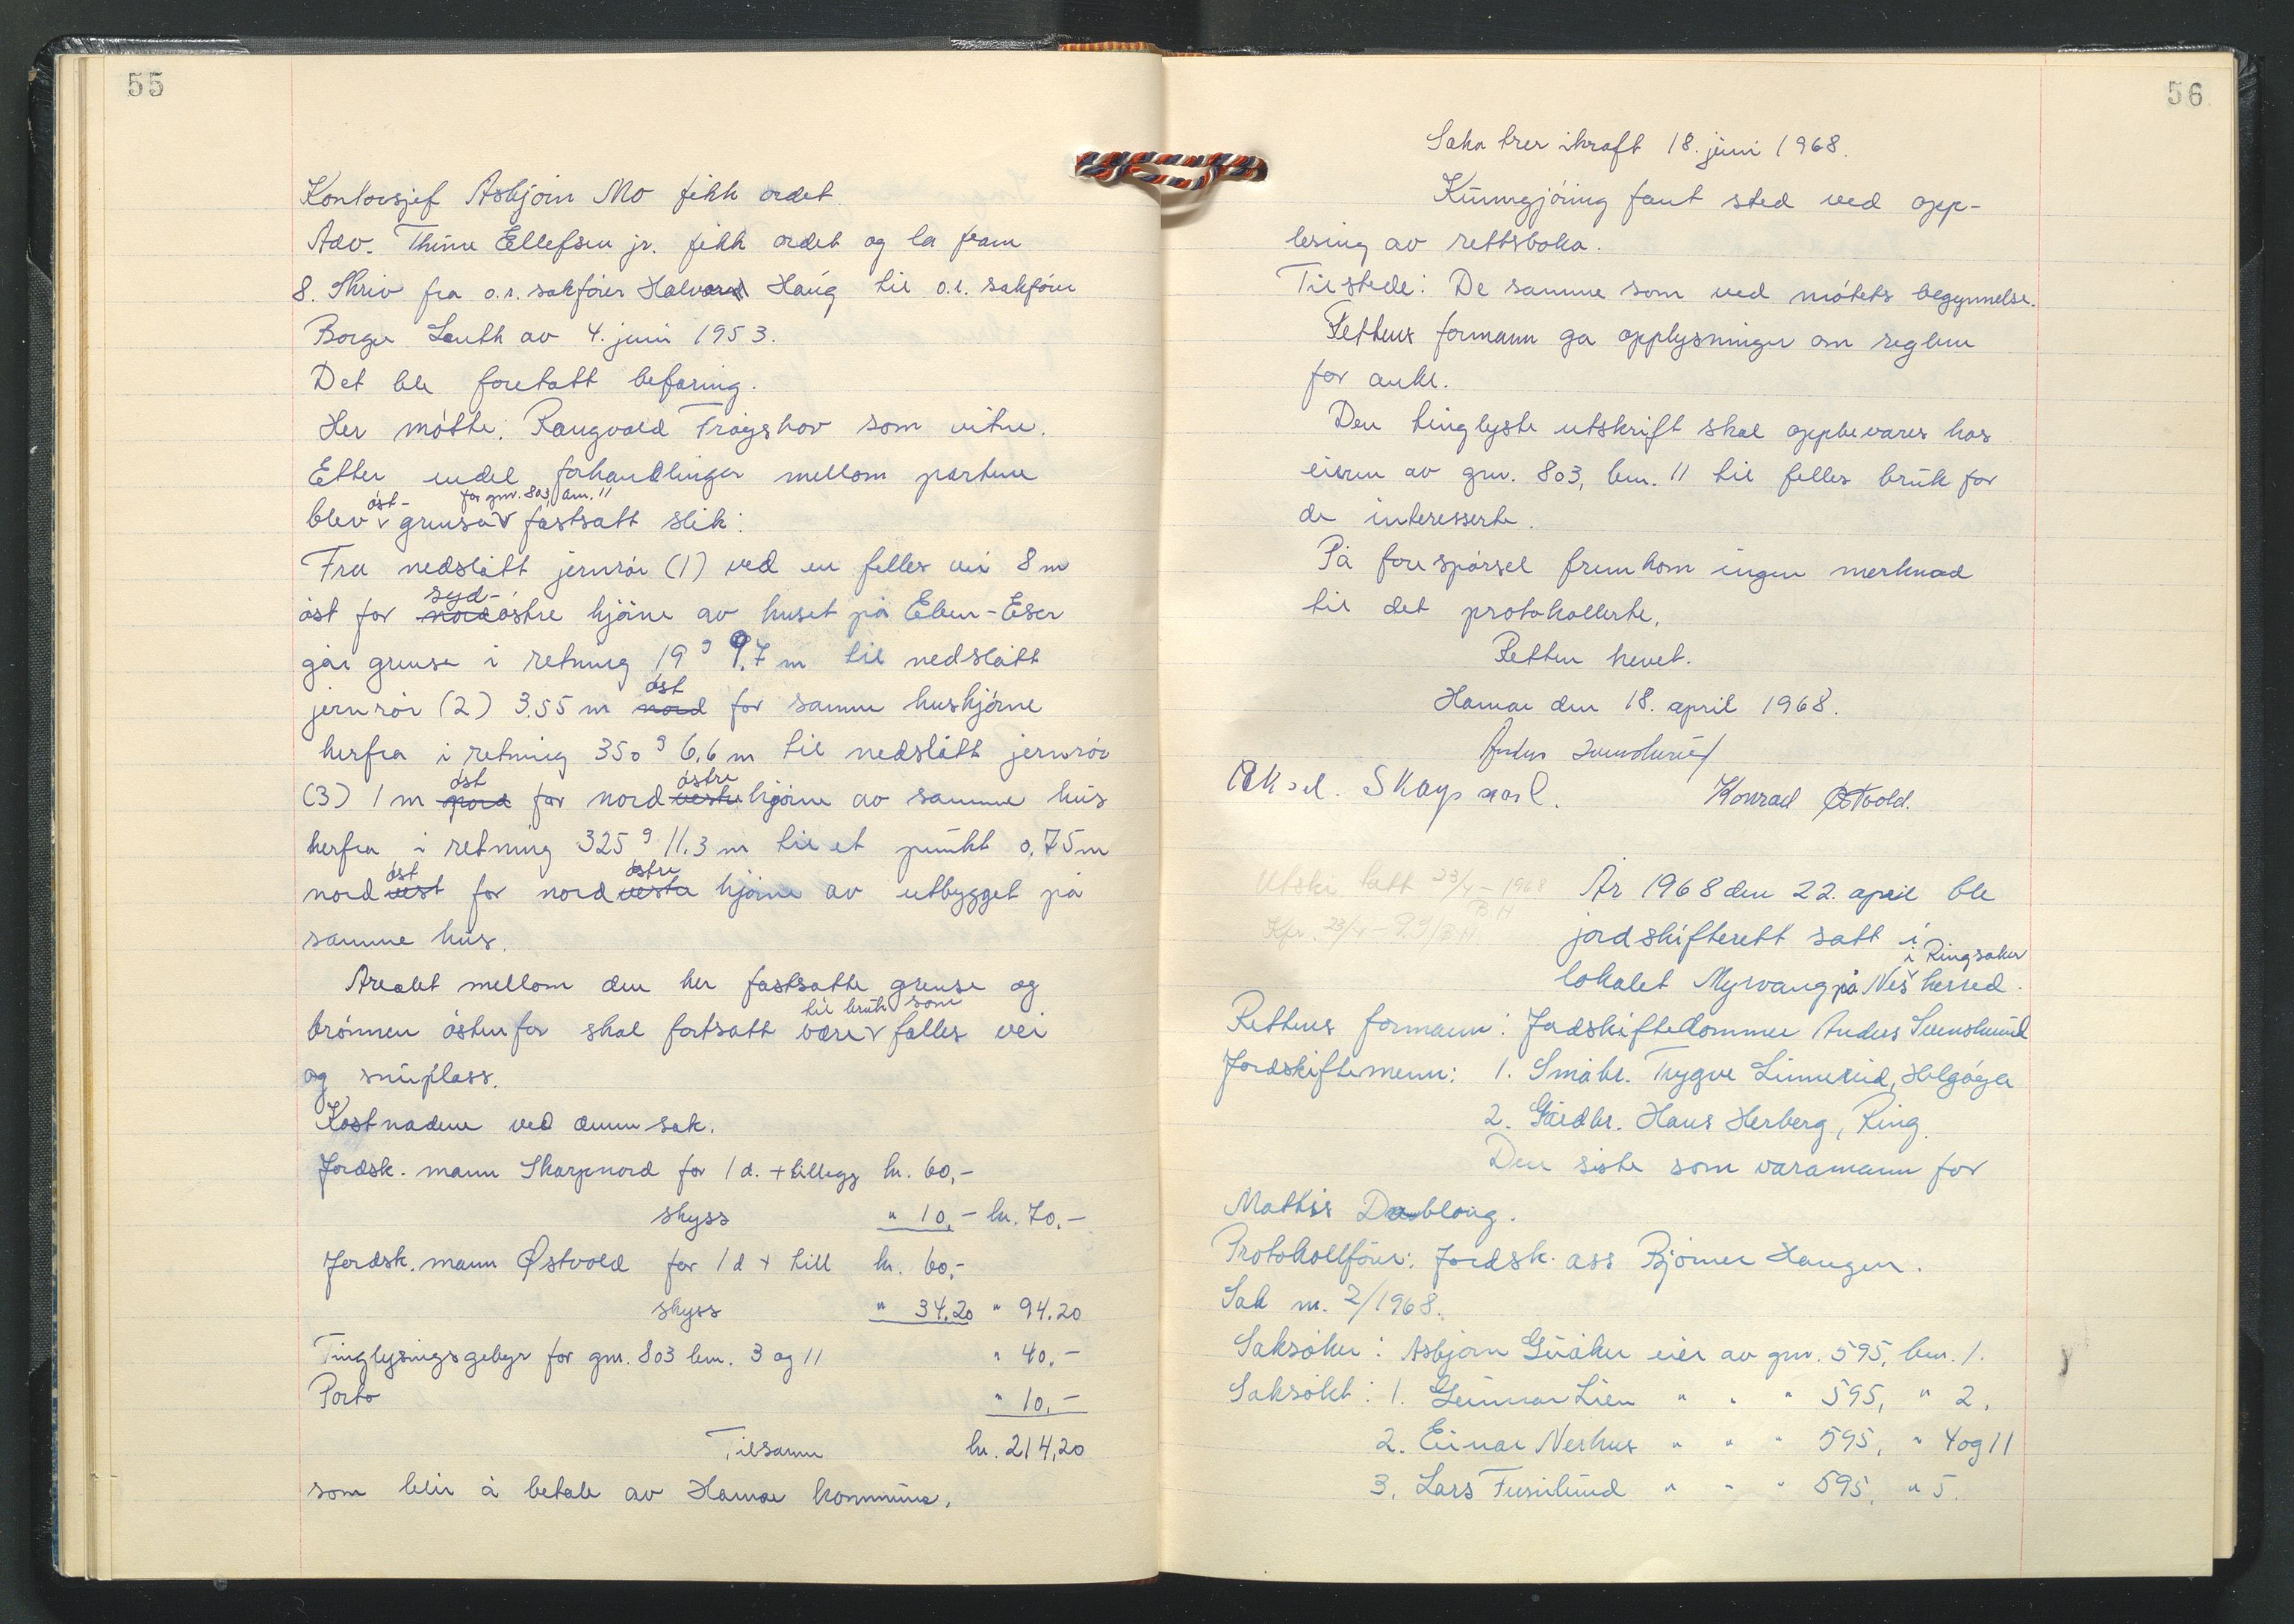 55
Kontorsjef Asbjørn Mo fikk ordet.
Adv. Thune Ellefsen jr. fikk ordet og la fram
8. Skriv fra o.r. sakfører Halvard Haug til o.r. sakfører
Borger Lenth av 4. juni 1953.
Det ble foretatt befaring.
Her møtte: Rangvald Trøgshov som vitne.
Etter endel forhandlinger mellom partene
øst- for gnr. 803 bnr. 11
blev grensa fastsatt slik:
Fra nedslått jernrør (1) ved en felles vei 8 m
syd-
øst for nordøstre hjørne av huset på Eben-Eser
går grense i retning 19 g 9,7 m til nedslått
øst
jernrør (2) 3.55 m nord for samme hushjørne
herfra i retning 350 g 6,6 m til nedslått jernrør
øst østre
(3) 1 m nord for nordvestre hjørne av samme hus
herfra i retning 325 g 11.3 m til et punkt 0,75 m
øst østre
nordvest for nordvestre hjørne av utbygget på
samme hus.
Arealet mellom den her fastsatte grense og
til bruk som
brønnen østenfor skal fortsatt være felles vei
og snuplass.
Kostnadene ved denne sak.
Jordsk. mann Skarpnord for 1 d. + tillegg kr. 60,-
skyss " 10,- kr. 70,-
Jordsk. mann Østvold for 1 d + till kr. 60,-
skyss " 34.20 " 94.20
Tinglysingsgebyr for gnr. 803 bnr. 3 og 11 " 40,-
Porto " 10,-
Tilsamm kr. 214,20
som blir å betale av Hamar kommune.
56
Saka trer ikraft 18. juni 1968.
Kunngjøring fant sted ved opp-
lesing av rettsboka.
Tilstede: De samme som ved møtets begynnelse.
Rettens formann ga opplysninger om reglene
for anke.
Den tinglyste utskrift skal oppbevares hos
eieren av gnr. 803, bnr. 11 til felles bruk for
de interesserte.
På forespørsel fremkom ingen merknad
til det protokollerte.
Retten hevet.
Hamar den 18. april 1968.
Anders Svenskerud
Aksel. Skarpnord. Konrad Østvold.
Utskr tatt 23/4 - 1968
BH
Kfr. 23/4
År 1968 den 22. april ble
jordskifterett satt i
i Ringsaker
lokalet Myrvang på Nes herred.
Rettens formann: Jordskiftedommer Anders Svenskerud
Jordskiftemenn: 1. Småbr. Trygve Linnerud, Helgøya
2. Gårdbr. Hans Herberg, Ring.
Den siste som varamann for
Mathis Dobloug.
Protokollfører: Jordsk. ass Bjørner Haugen.
Sak nr. 2/1968.
Saksøker: Asbjørn Guåker eier av gnr. 595, bnr. 1.
Saksøkt: 1. Gunnar Lien " " " 595, " 2,
2. Einar Neshus " " " 595, " 4 og 11
3. Lars Furulund " " " 595, " 5.